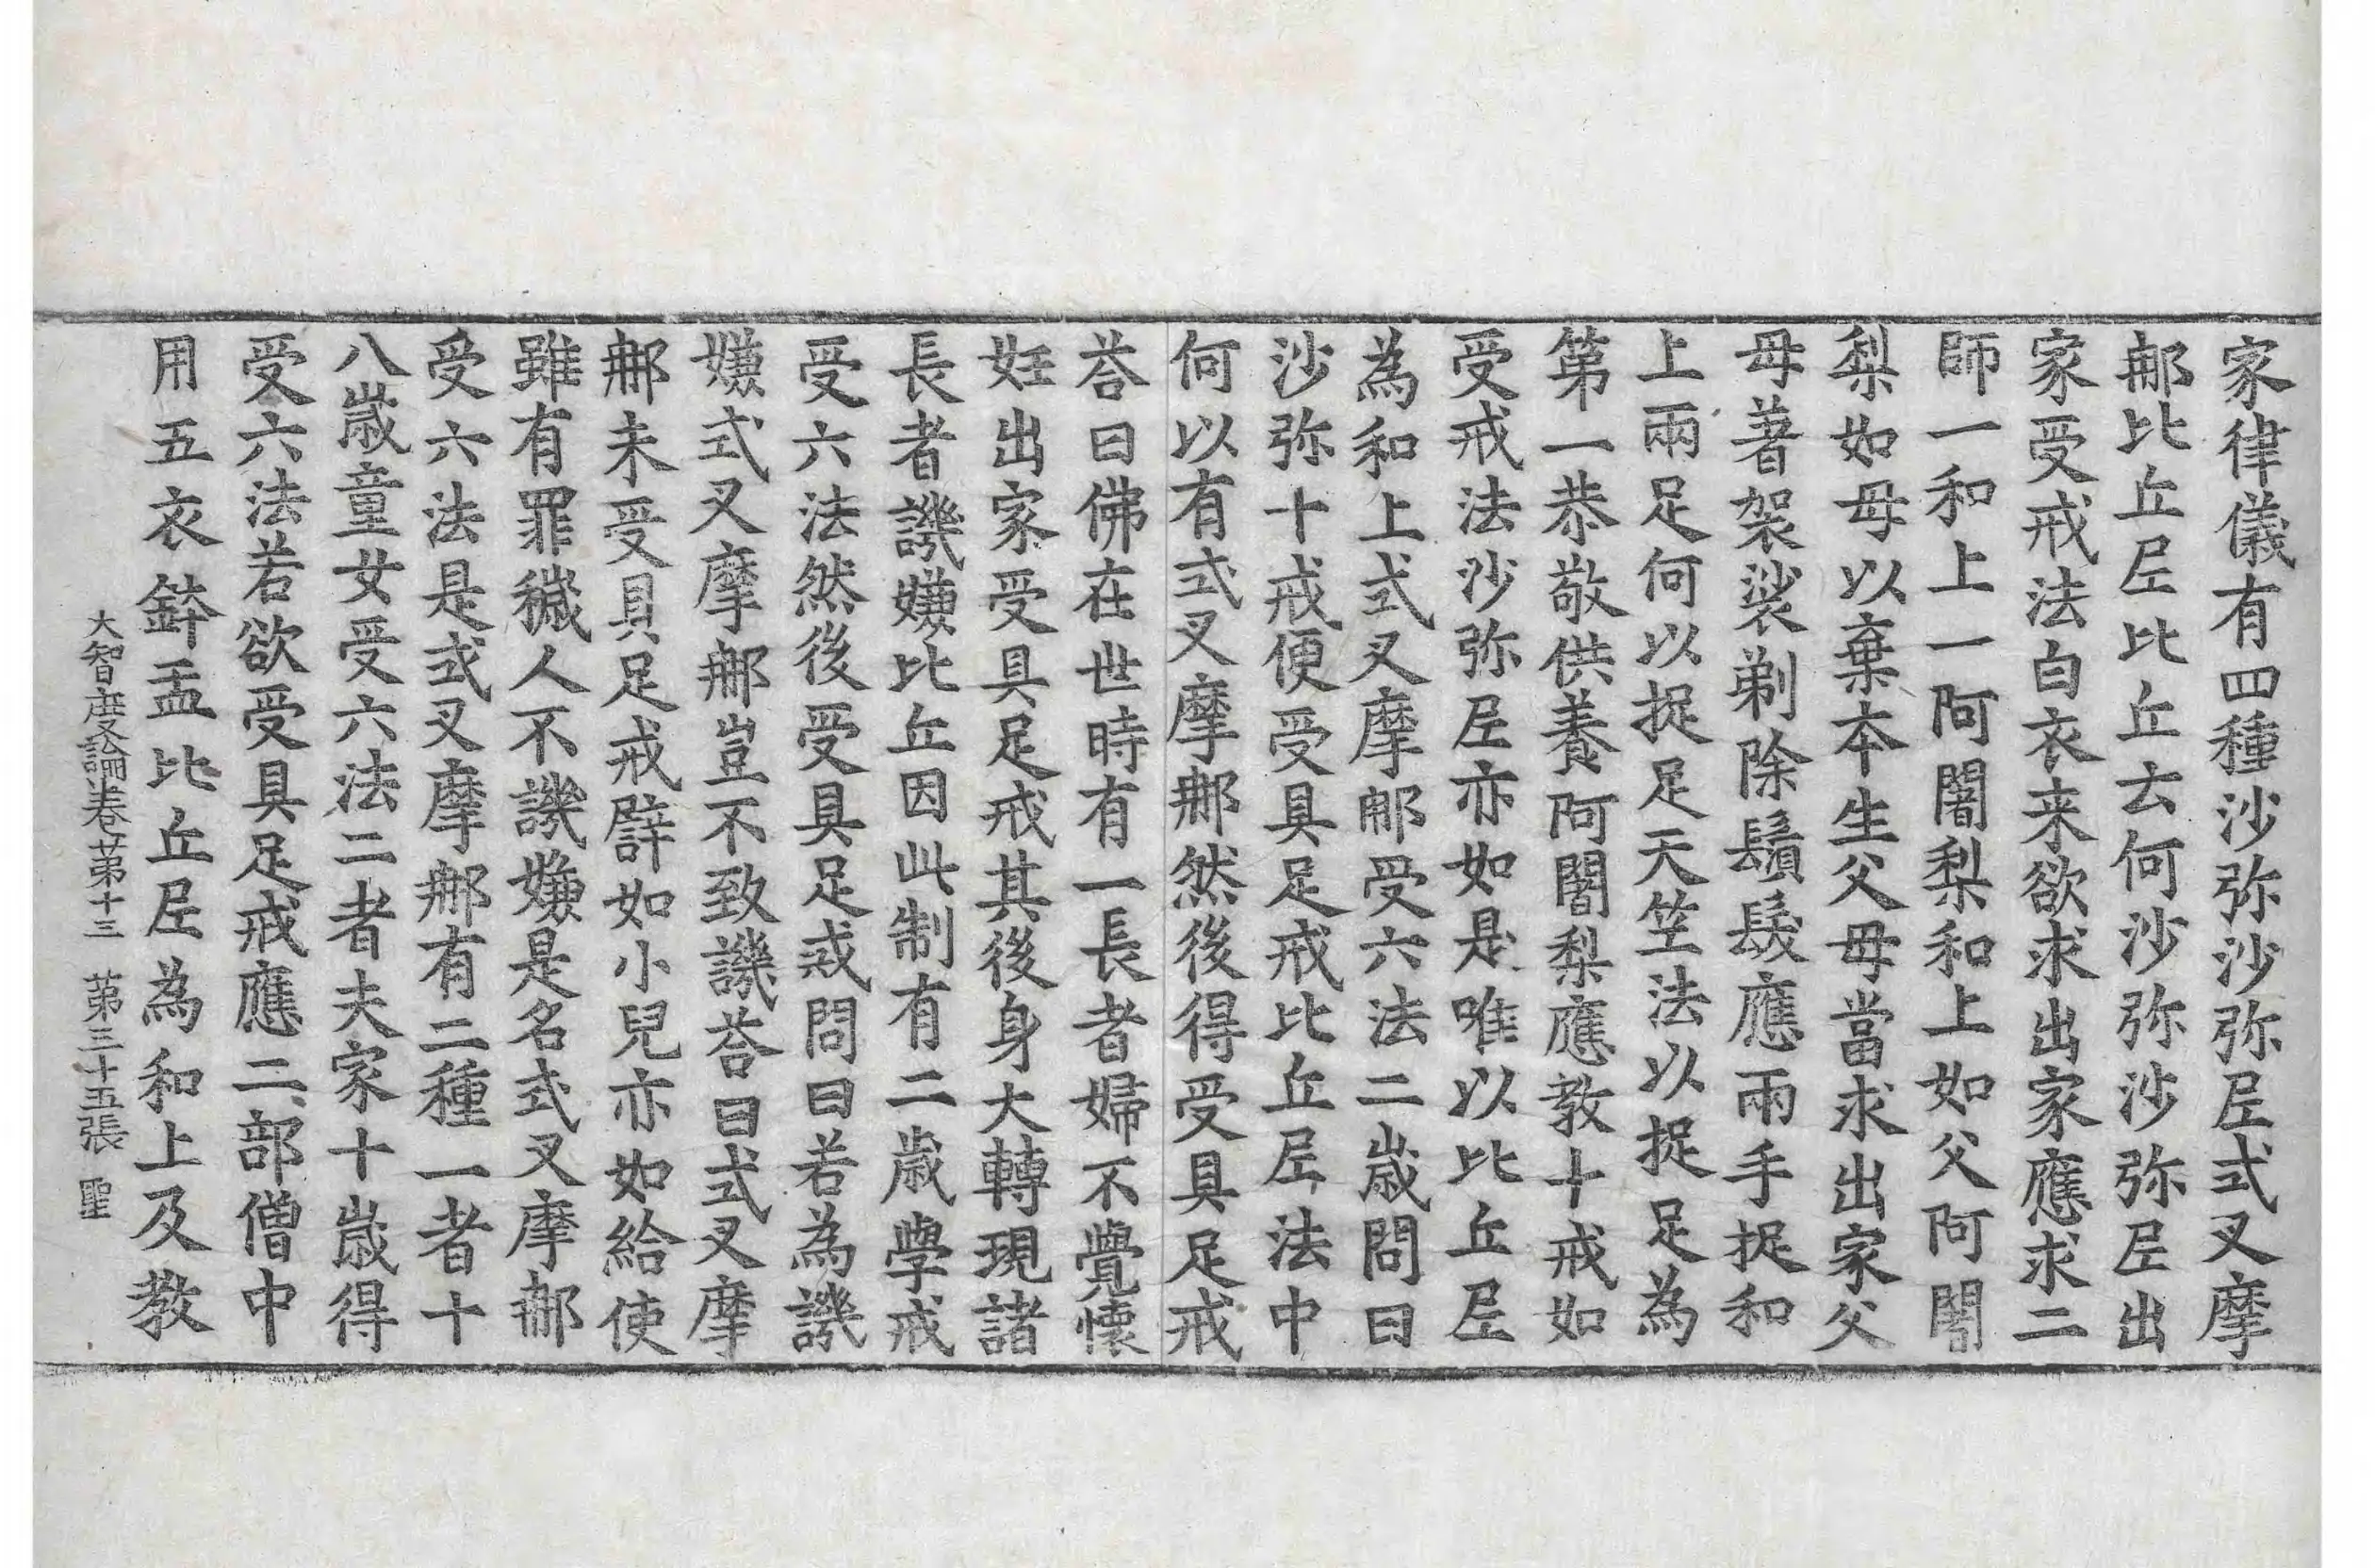 家律儀有四種沙弥沙弥𡰱式叉摩
𨚗比丘𡰱比丘云何沙弥沙弥𡰱出
家受戒法白衣来欲求出家應求二
師一和上一阿闍梨和上如父阿闍
梨如母以棄本生父母當求出家父
母著袈裟剃除鬚髮應兩手捉和
上兩足何以捉足天竺法以捉足為
第一恭敬供養阿闍梨應教十戒如
受戒法沙弥𡰱亦如是唯以比丘𡰱
為和上式叉摩𨚗受六法二歲問曰
沙弥十戒便受具足戒比丘𡰱法中
何以有式叉摩𨚗然後得受具足戒
荅曰佛在世時有一長者婦不覺懷
妊出家受具足戒其後身大轉現諸
長者譏嫌比丘因此制有二歲學戒
受六法然後受具足戒問曰若為譏
嫌式叉摩𨚗豈不致譏荅曰式叉摩
𨚗未受具足戒譬如小兒亦如給使
雖有罪穢人不譏嫌是名式叉摩𨚗
受六法是式叉摩𨚗有二種一者十
八歲童女受六法二者夫家十歲得
受六法若欲受具足戒應二部僧中
用五衣鉢盂比丘𡰱為和上及教
大智度論卷苐十三 苐三十五張 聖